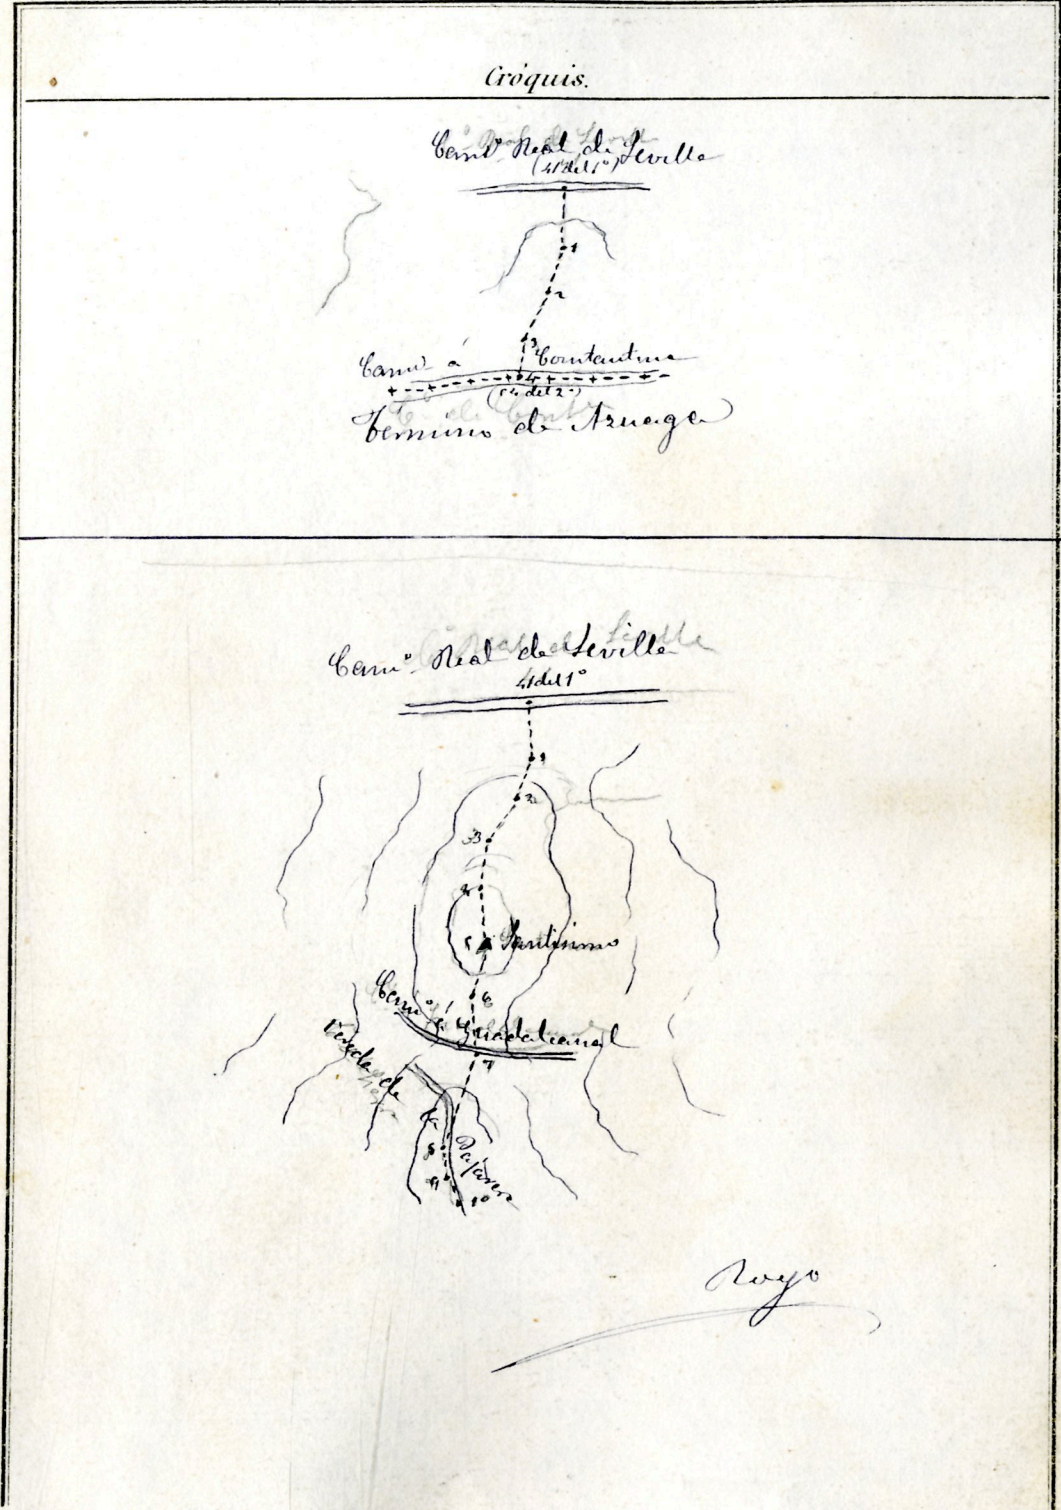 Cróquis.
Cam.º Real de Sevilla
(41 del 1º)
1
2
3
Cam.º á Constantina
4
(54 del 2º)
Termino de Azuaga
Cam.º Real de Sevilla
41 del 1º
1
2
3
4
5 Santisimo
6
Cam.º á Guadalcanal
7
Vereda de
Pajarera
8
9
10
Royo